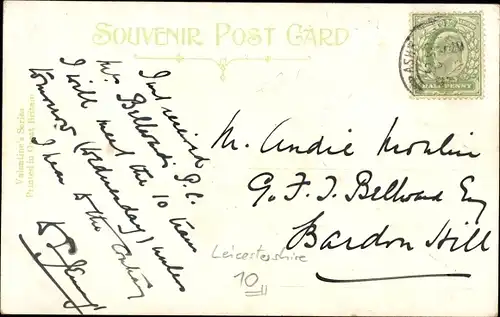 SOUVENIR POST CARD
Valentine's Series
Printed in Great Britain
Just received
Mr. Bellward's P.C.
I will meet the 10 train
tomorrow (Wednesday) unless
I hear to the contrary
M. André Moulin
G. F. J. Bellward Esq
Bardon Hill
Leicestershire
10
HALFPENNY
ASHBY